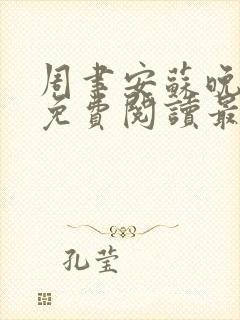 周聿安蘇晚
免費閱讀最
孔莹